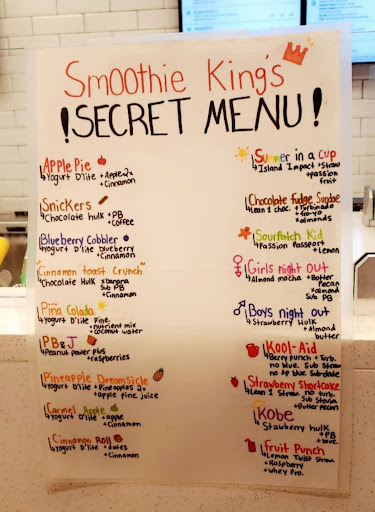 Smoothie King's
! SECRET MENU !
Apple Pie
Yogurt D'lite + Apple 2x
+ Cinnamon
Snickers
Chocolate hulk + PB
+ Coffee
Blueberry Cobbler
Yogurt D'lite blueberry
+ Cinnamon
"Cinnamon Toast Crunch"
Chocolate Hulk x banana
sub PB
+ Cinnamon
Piña Colada
Yogurt D'lite Pine.
+ nutrient mix
+ coconut water
PB & J
Peanut power plus
+ raspberries
Pineapple Dreamsicle
Yogurt D'lite + Pineapples 2x
+ apple pine juice
Carmel Apple
Yogurt D'lite + apple
+ Cinnamon
Cinnamon Roll
Yogurt D'lite + dates
+ Cinnamon
Summer in a Cup
Island Impact + Straw
+ passion
fruit
Chocolate Fudge Sundae
Lean 1 choc. + Turbinado
+ fro-yo
+ almonds
SourPatch Kid
Passion Passport
+ Lemon
Girls night out
Almond mocha + Butter
Pecan
x almond
Sub PB
Boys night out
Strawberry Hulk
+ Almond
butter
Kool-Aid
Berry punch + Turb.
no blue. Sub Straw
Strawberry Shortcake
Lean 1 Straw. no turb.
Sub Stevia
+ Butter pecan
Kobe
Stawberry hulk
+ PB
+ blue.
Fruit Punch
Lemon Twist Straw.
+ Raspberry
+ whey Pro.